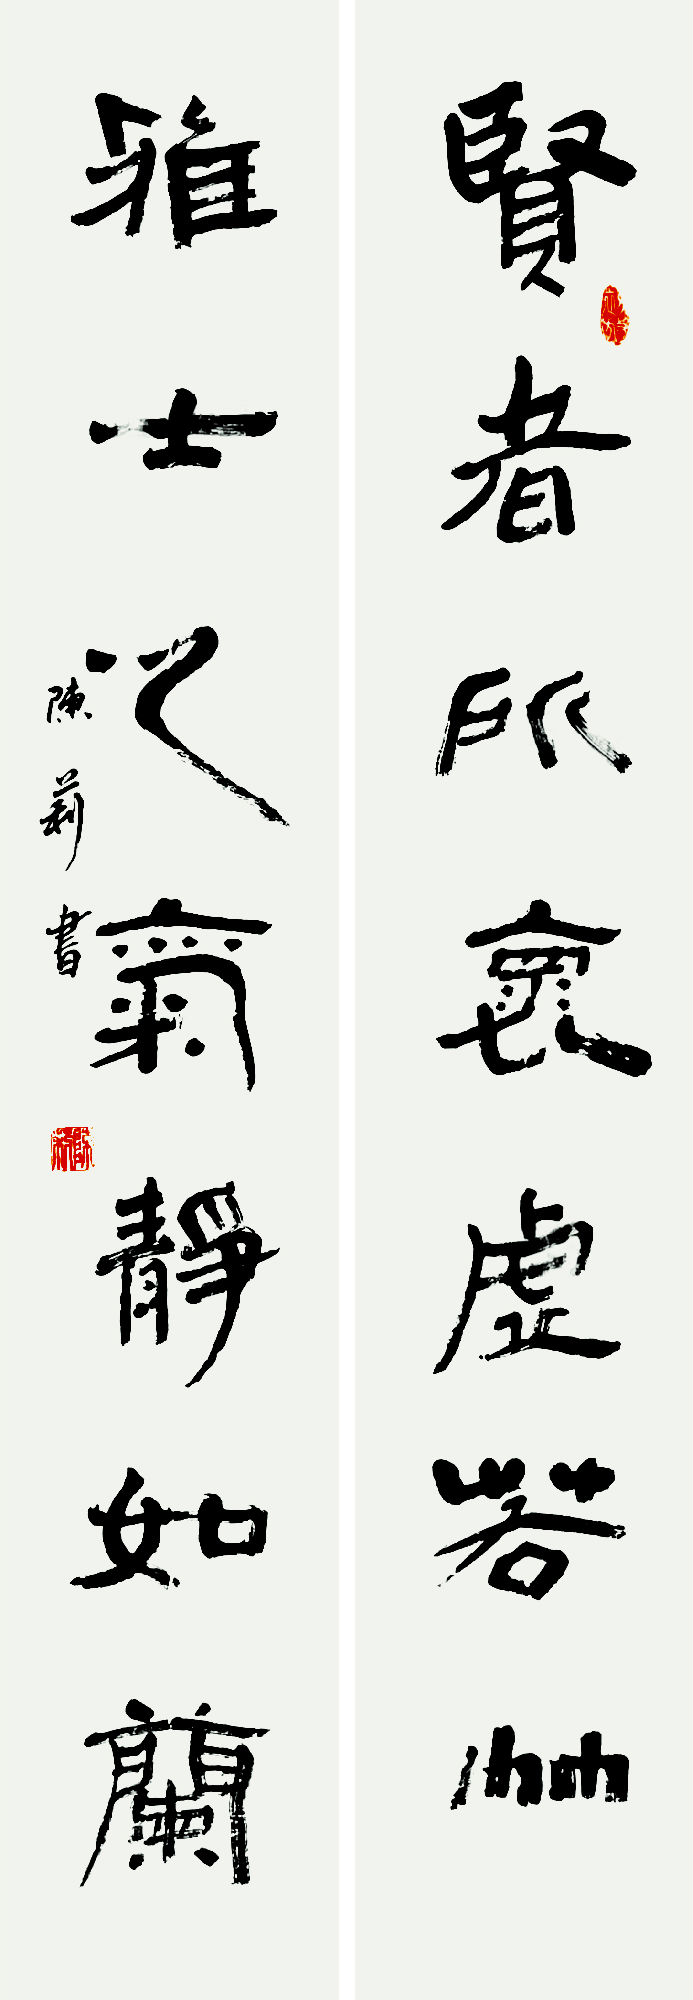 賢者所懷虛若竹
雅士之氣靜如蘭
陳莉書